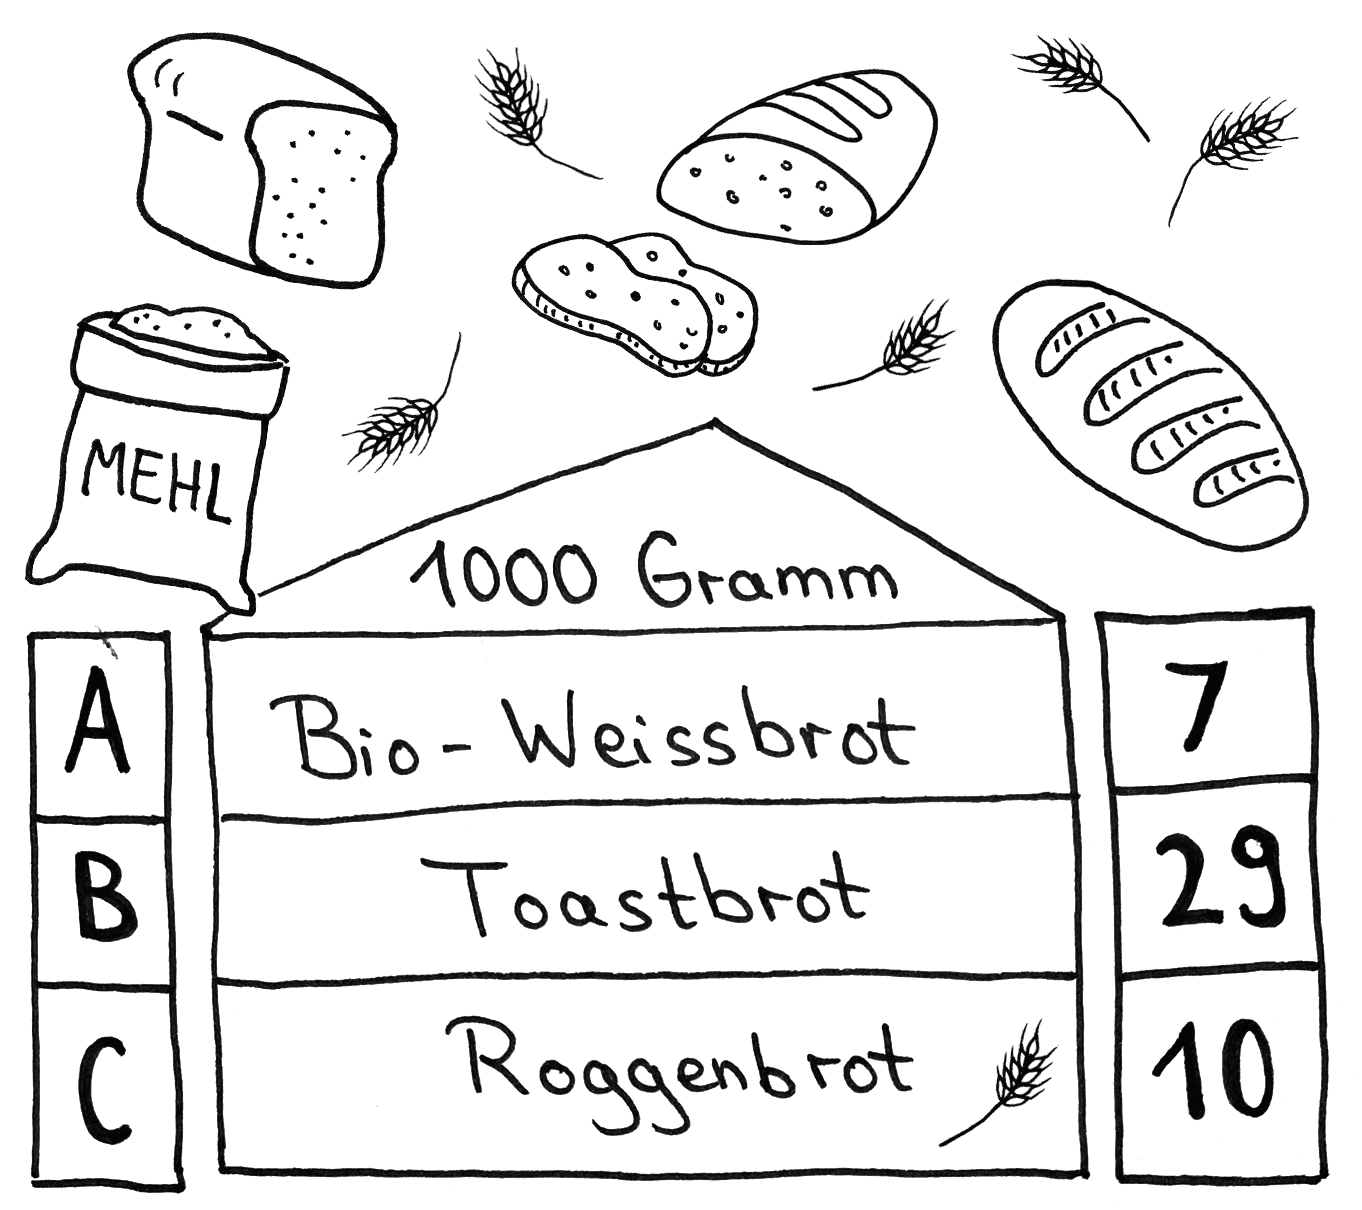 MEHL
1000 Gramm
A Bio-Weissbrot 7
B Toastbrot 29
C Roggenbrot 10